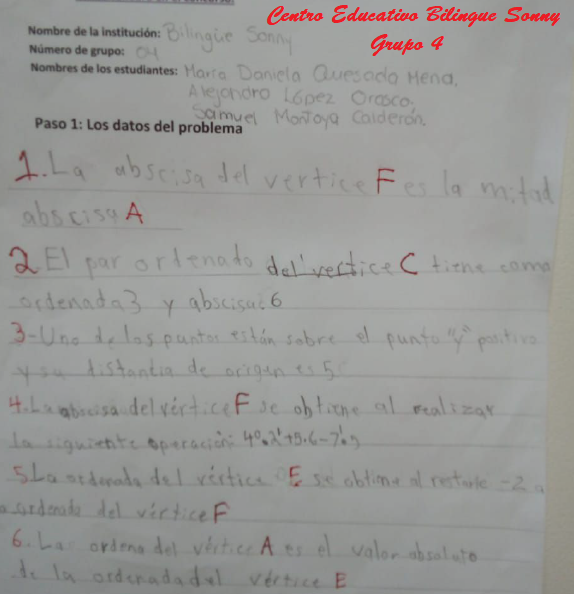 Centro Educativo Bilingue Sonny
Grupo 4
Nombre de la institución: Bilingüe Sonny
Número de grupo: 04
Nombres de los estudiantes: María Daniela Quesada Mena.
Alejandro López Orosco.
Samuel Montoya Calderón.
Paso 1: Los datos del problema
1. La abscisa del vertice F es la mitad
abscisa A
2. El par ordenado del vertice C tiene como
ordenada 3 y abscisa: 6
3-Uno de los puntos están sobre el punto "y" positivo
y su distantia de origen es 5
4. La abscisa del vértice F se obtiene al realizar
la siguiente operación:
5. La ordenada del vértice E se obtime al restarle -2 a
a ordenada del vértice F
6. La ordena del vértice A es el valor absoluto
de la ordenada del vértice E